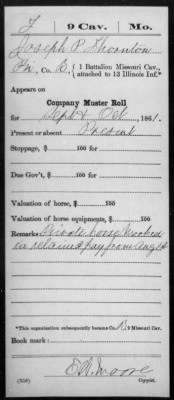 T 9 Cav. Mo.
Joseph P Thornton
Pvt, Co. B, 1 Battalion Missouri Cav., attached to 13 Illinois Inf.*
Appears on
Company Muster Roll
for Sept & Oct, 1861.
Present or absent Present
Stoppage, $ 100 for
Due Gov't, $ 100 for
Valuation of horse, $ 100
Valuation of horse equipments, $ 100
Remarks: Private horse
in retained pay from Aug
*This organization subsequently became Co. B, 9 Missouri Cav.
Book mark:
E.W. Moore
(358) Copyist.